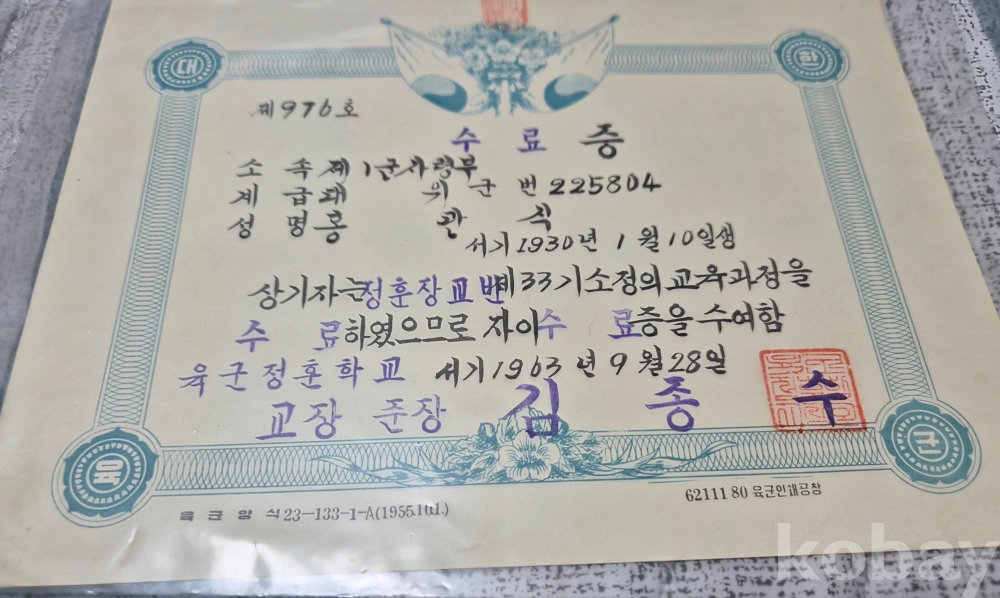 대 한
제976호
수료증
소속 제1군사령부
계급 대위 군번 225804
성명 홍관식
서기1930년 1월10일생
상기자는 정훈장교반 제33기소정의교육과정을
수료하였으므로 자이 수료증을수여함
서기1963년 9월28일
육군정훈학교
교장 준장 김종수
육 군
육군양식23—133—1—A(1955.10.1.)
62111 80 육군인쇄공창
kobay